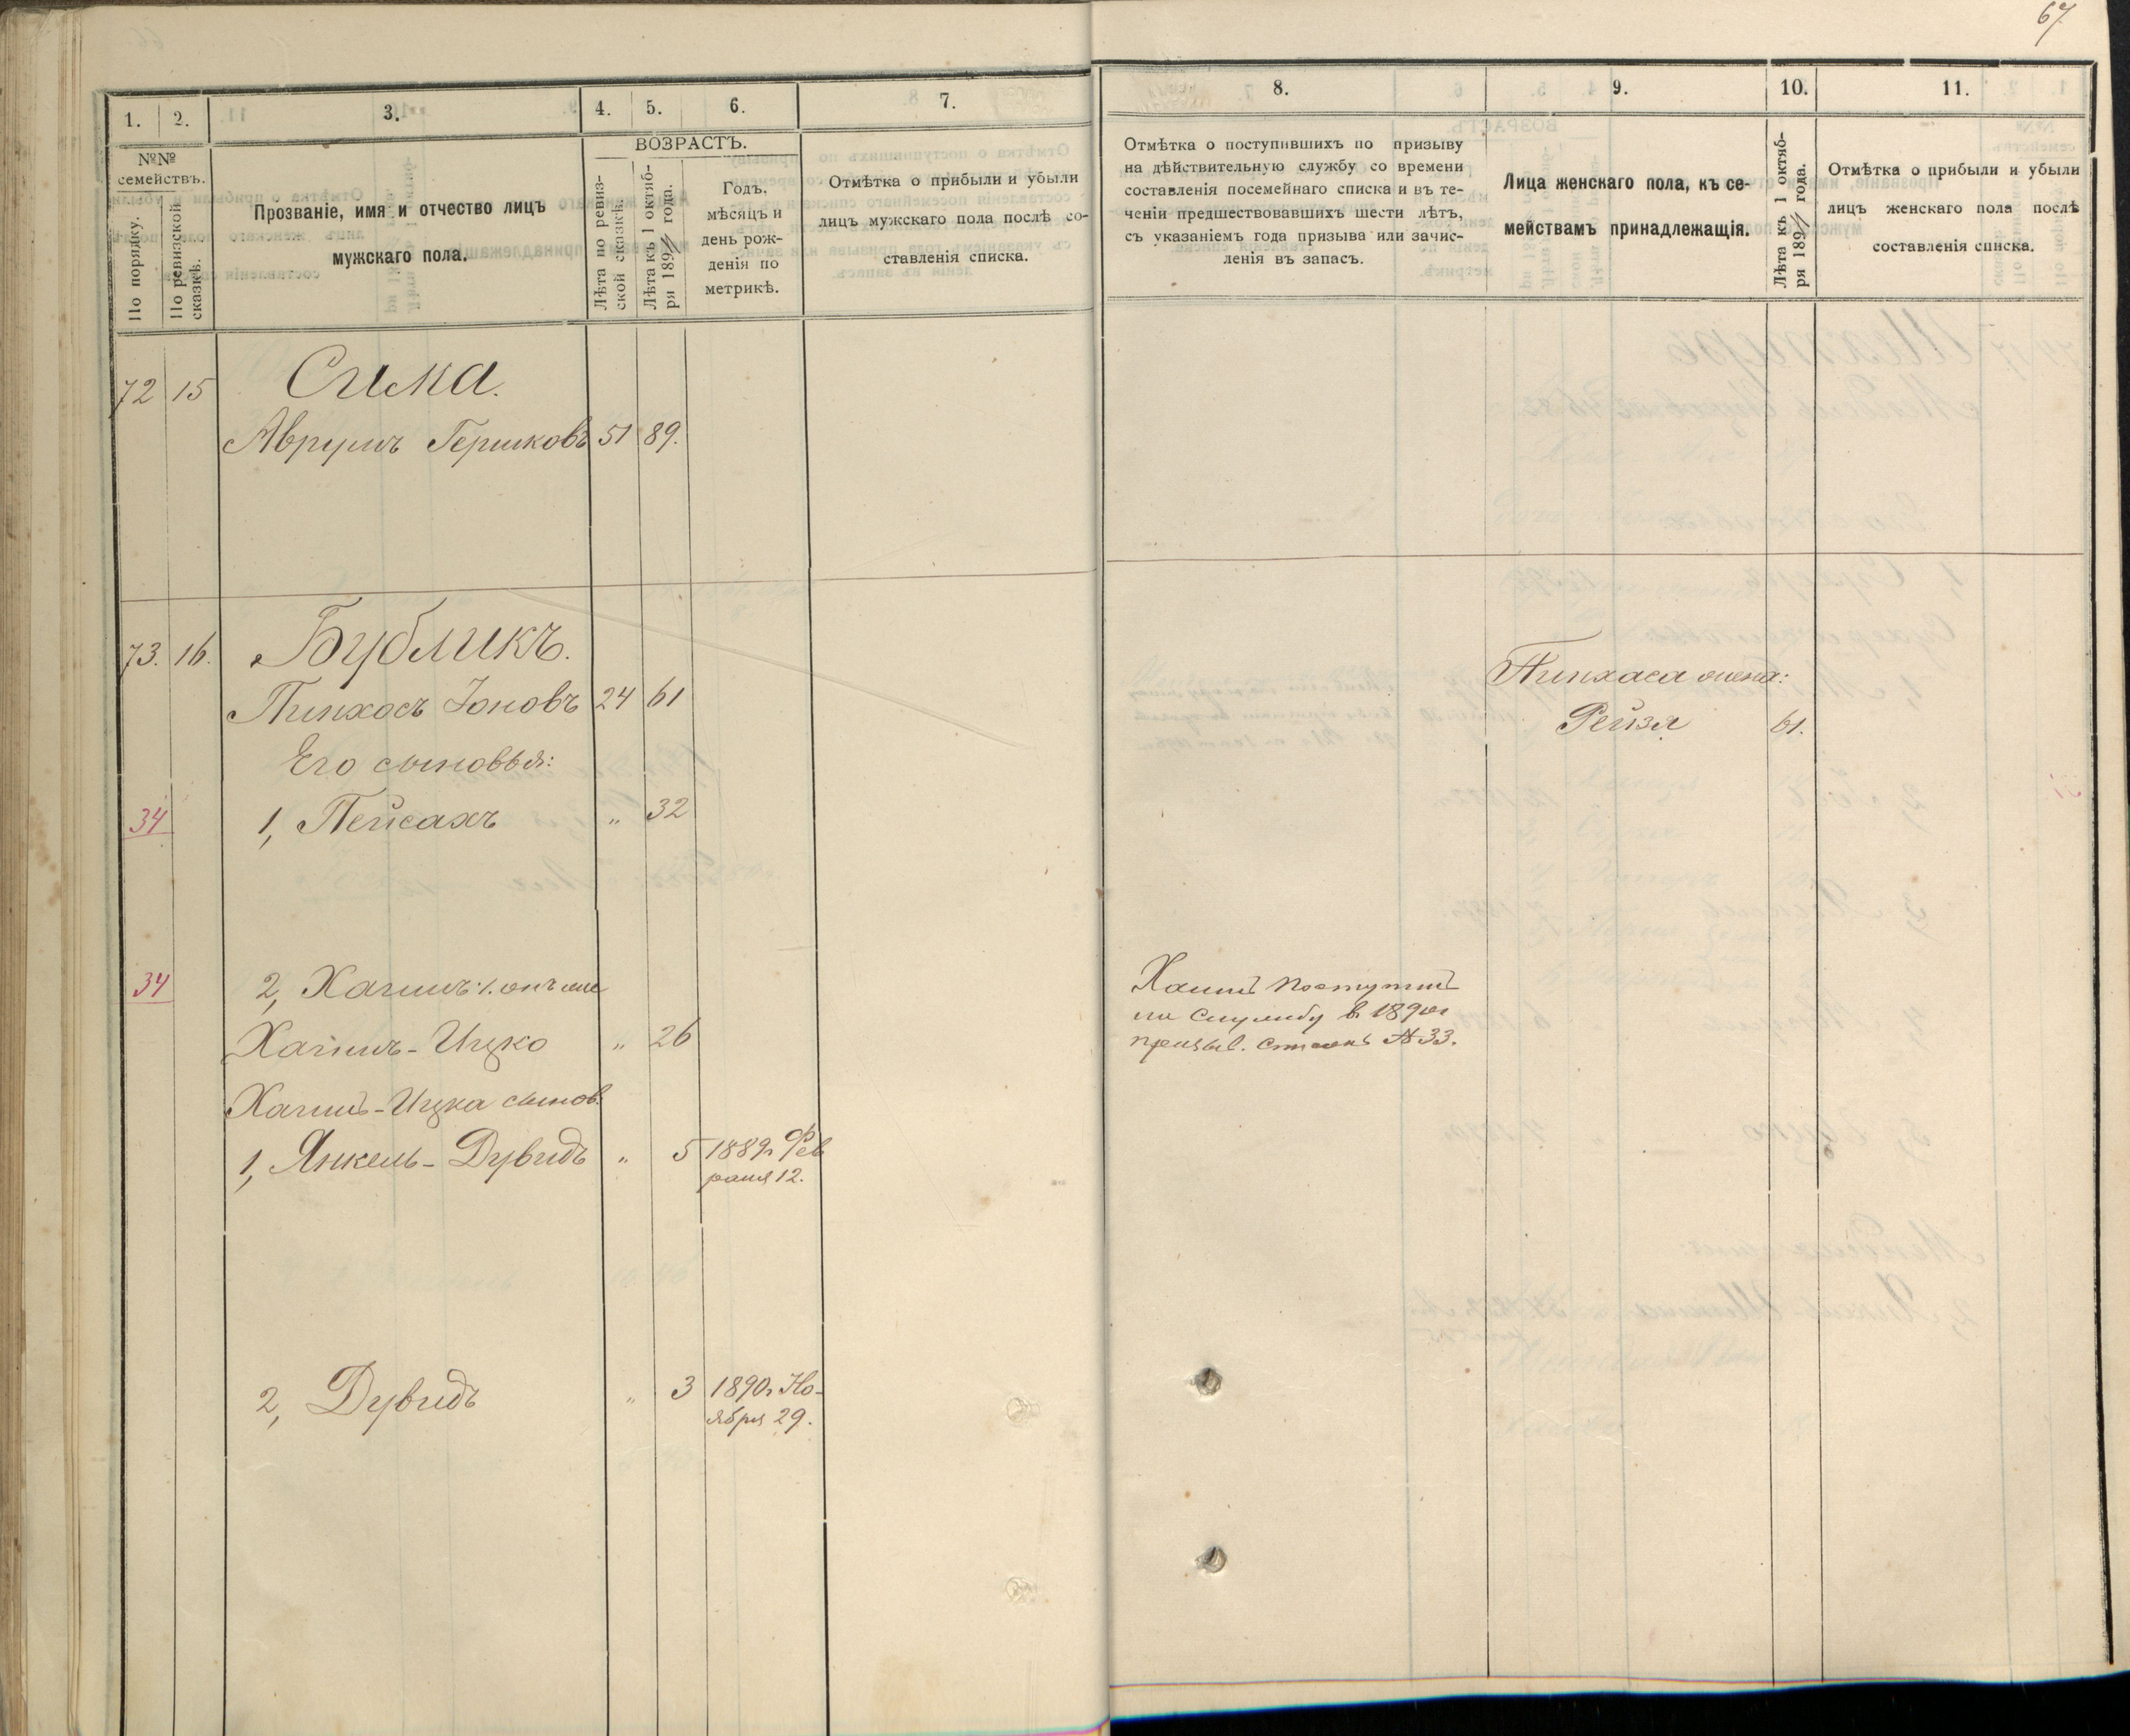 67
1. 2. 3. 4. 5. 6. 7.
№№ семействъ.
По порядку.
По ревизской сказкѣ.
Прозваніе, имя и отчество лицъ
мужскаго пола.
ВОЗРАСТЪ.
Лѣта по ревиз-
ской сказкѣ.
Лѣта къ 1 октяб-
ря 189 года.
Годъ,
мѣсяцъ и
день рож-
денія по
метрикѣ.
Отмѣтка о прибыли и убыли
лицъ мужскаго пола послѣ со-
ставленія списка.
8. 9. 10. 11.
Отмѣтка о поступившихъ по призыву
на дѣйствительную службу со времени
составленія посемейнаго списка и въ те-
ченіи предшествовавшихъ шести лѣтъ,
съ указаніемъ года призыва или зачис-
ленія въ запасъ.
Лица женскаго пола, къ се-
мействамъ принадлежащія.
Лѣта къ 1 октяб-
ря 189 года.
Отмѣтка о прибыли и убыли
лицъ женскаго пола послѣ
составленія списка.
72 15 Сима.
Аврумъ Гершковъ 51 89.
73. 16. Бубликъ.
Пинхосъ Іоновъ 24 61
Его сыновья:
34 1, Пейсахъ " 32
34 2, Хаимъ: онъ же
Хаимъ-Ицко " 26
Хаимъ-Ицка сынов.
1, Янкель-Дувидъ " 5 1889г Фев
раля 12.
2, Дувидъ " 3 1890г Но-
ября 29.
Пинхаса жена:
Рейзя 61.
Хаимъ поступилъ
на службу в 1890г
призыв. списокъ №33.